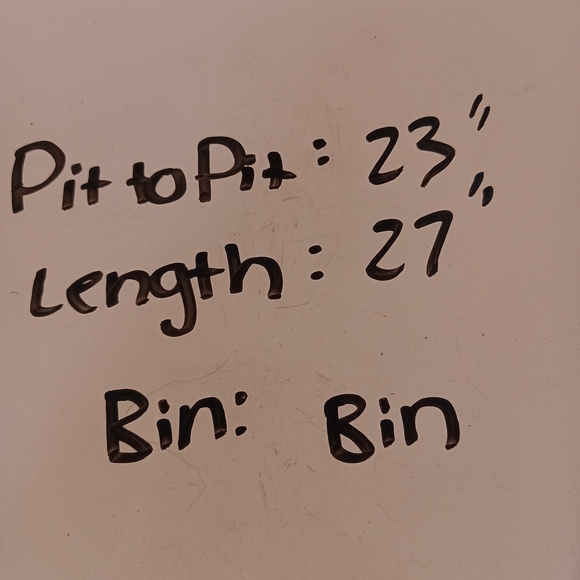 Pit to Pit: 23"
Length: 27"
Bin: Bin